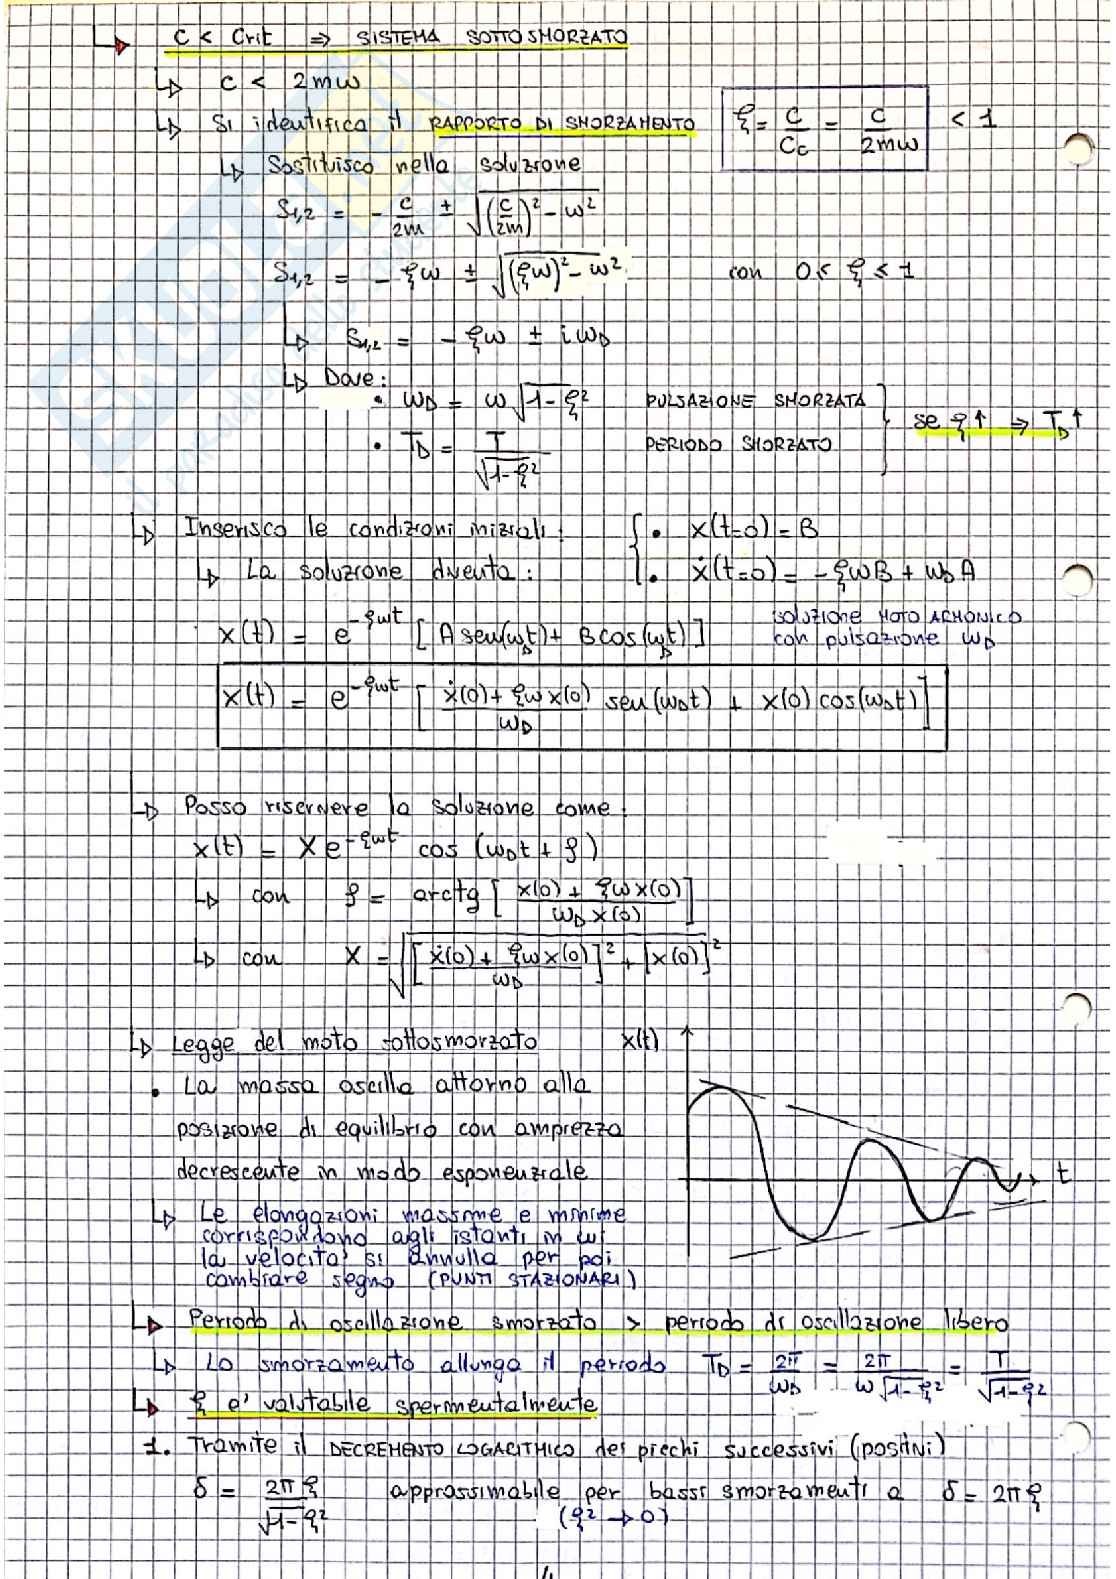 ↳ C < Crit ⇒ SISTEMA SOTTOSMORZATO
↳ C < 2mω
↳ Si identifica il RAPPORTO DI SMORZAMENTO ξ = C/Cc = C/2mω < 1
↳ Sostituisco nella soluzione
S1,2 = - C/2m ± √((C/2m)² - ω²)
S1,2 = - ξω ± √((ξω)² - ω²) con 0 < ξ < 1
↳ S1,2 = - ξω ± iωD
↳ Dove:
• ωD = ω√(1-ξ²) PULSAZIONE SMORZATA
se ξ↑ ⇒ TD↑
• TD = T/√(1-ξ²) PERIODO SMORZATO
↳ Inserisco le condizioni iniziali: { • x(t=0) = B
↳ La soluzione diventa: • ẋ(t=0) = -ξωB + ωDA
x(t) = e^(-ξωt) [A sen(ωDt) + B cos(ωDt)] soluzione MOTO ARMONICO
con pulsazione ωD
x(t) = e^(-ξωt) [(ẋ(0) + ξωx(0))/ωD sen(ωDt) + x(0) cos(ωDt)]
↳ Posso riscrivere la soluzione come:
x(t) = X e^(-ξωt) cos (ωDt + ρ)
↳ con ρ = arctg [(x(0) + ξωx(0))/(ωD x(0))]
↳ con X = √([(ẋ(0) + ξωx(0))/ωD]² + [x(0)]²)
↳ Legge del moto sottosmorzato x(t)
• La massa oscilla attorno alla
posizione di equilibrio con ampiezza
decrescente in modo esponenziale
t
↳ Le elongazioni massime e minime
corrispondono agli istanti in cui
la velocità si annulla per poi
cambiare segno (PUNTI STAZIONARI)
↳ Periodo di oscillazione smorzato > periodo di oscillazione libero
↳ Lo smorzamento allunga il periodo TD = 2π/ωD = 2π/(ω√(1-ξ²)) = T/√(1-ξ²)
↳ ξ e' valutabile sperimentalmente
1. Tramite il DECREMENTO LOGARITHMICO dei picchi successivi (positivi)
δ = 2πξ/√(1-ξ²) approssimabile per bassi smorzamenti a δ = 2πξ
(ξ² → 0)